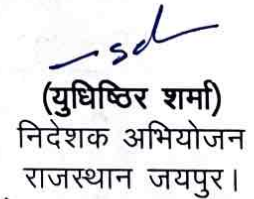 sd
(युधिष्ठिर शर्मा)
निदेशक अभियोजन
राजस्थान जयपुर।